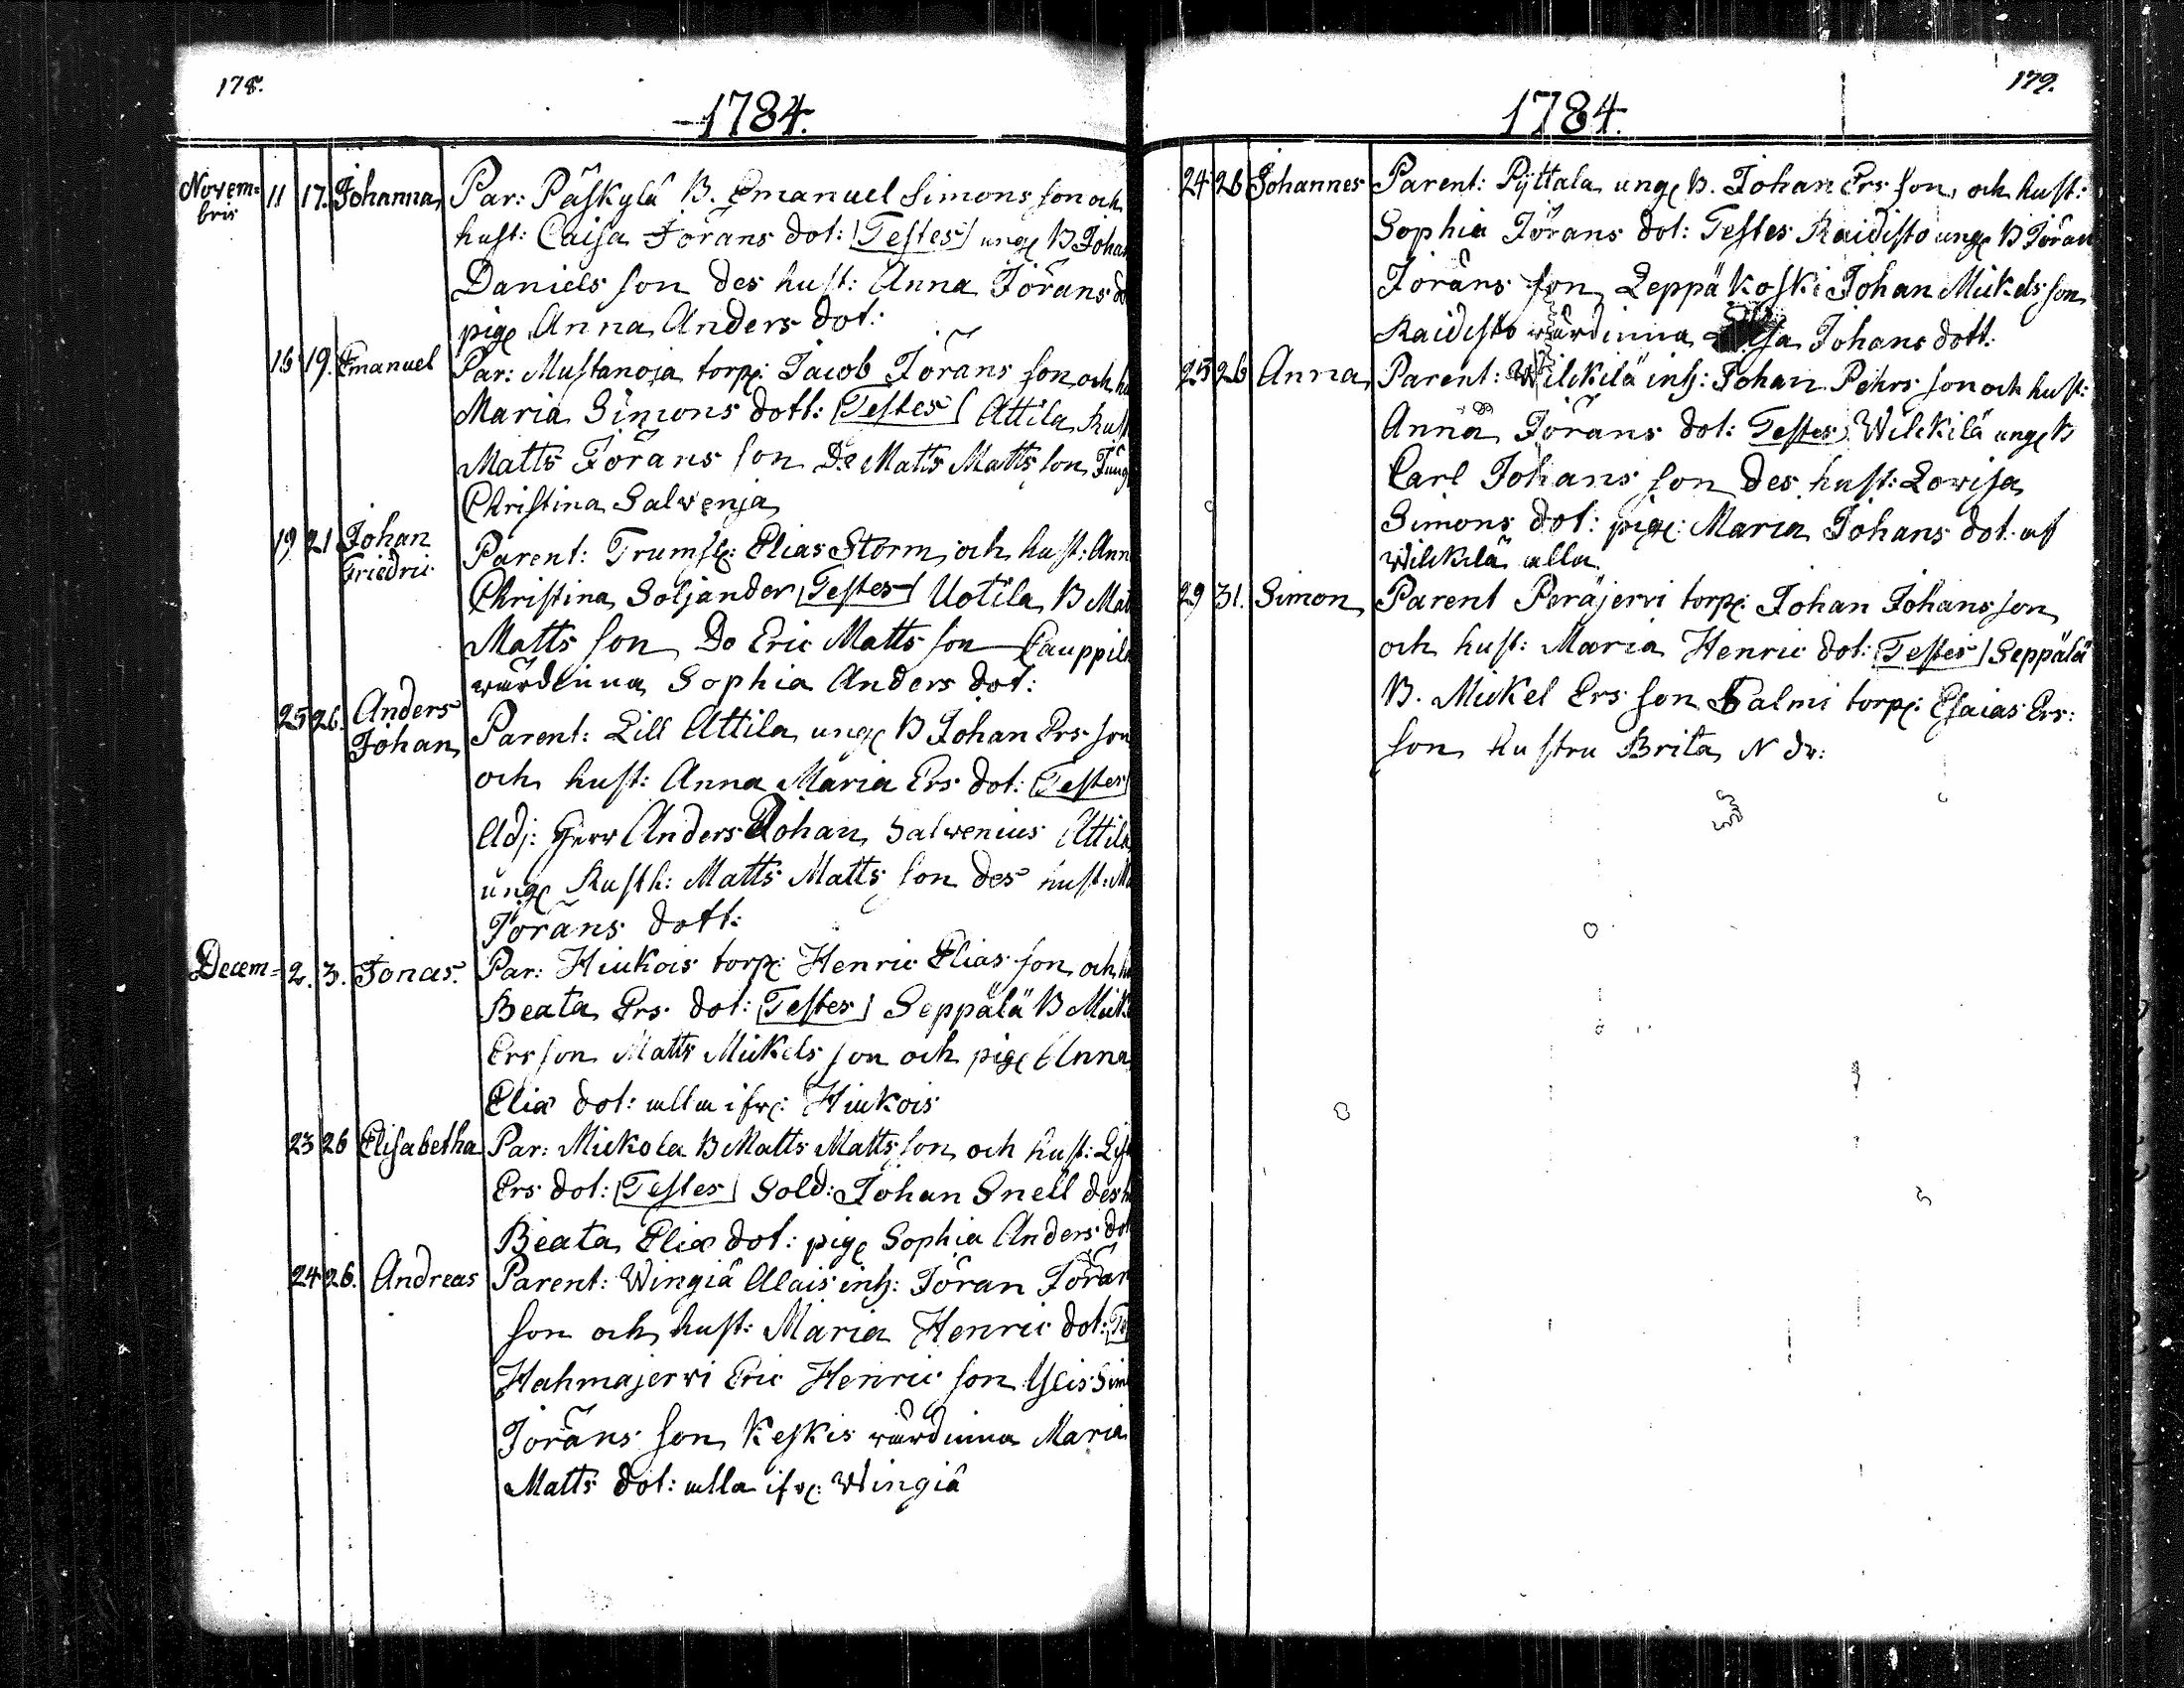 178.
1784.
Novem=
bris
11 17. Johanna Par: Päskylä B. Emanuel Simons son och
hust: Caisa Jörans dot: Testes ung B Johan
Daniels son des hust: Anna Jörans
pig Anna Anders dot:
16 19. Emanuel Par: Mustanoja torp: Jacob Jörans son och
Maria Simons dott: Testes Attila Rust
Matts Jörans son Do Matts Matts son
Christina Salvenja
19 21 Johan Friedric Parent: Elias Storm och hust: Ann
Christina Soljander Testes Uotila B Mat
Matts son Do Eric Matts son Cauppila
värdinna Sophia Anders dot:
25 26. Anders Johan Parent: Lill Attila ung B Johan Ers son
och hust: Anna Maria Ers dot: Testes
Adj: Herr Anders Johan Salvenius Attila
ung Rusth: Matts Matts son des hust: Ma
Jörans dott:
Decem= 2. 3. Jonas. Par: Hiukois torp: Henric Elias son och
Beata Ers dot: Testes Seppälä B Mick
Ers son Matts Mickels son och pig Anna
Eliæ dot: alla ifr: Hiukois
23 26 Elisabetha Par: Mickola B Matts Matts son och hust: Lis
Ers dot: Testes Sold: Johan Snell des h
Beata Eliæ dot: pig Sophia Anders dot
24 26. Andreas Parent: Wingiä Alais inh: Jöran Jöran
son och hust: Maria Henric dot: Te
Hahmajervi Eric Henric son Simo
Jörans son Keskis värdinna Maria
Matts dot: alla ifr: Wingiä
179.
1784.
24 26 Johannes Parent: Pyttala ung B. Johan Ers son och hust:
Sophia Jörans dot: Testes Raidisto ung B Jöran
Jörans son Leppäkoski Johan Mickels son
Raidisto värdinna Johans dott:
25 26 Anna Parent: Wilckilä inh: Johan Pehrs son och hust:
Anna Jörans dot: Testes Wilckilä ung B
Carl Johans son des hust: Lovisa
Simons dot: pig: Maria Johans dot. af
Wilckilä alla
29 31. Simon Parent Peräjervi torp: Johan Johans son
och hust: Maria Henric dot: Testes Seppälä
B. Mickel Ers son Salmi torp: Esaias Ers:
son hustru Brita N dr: